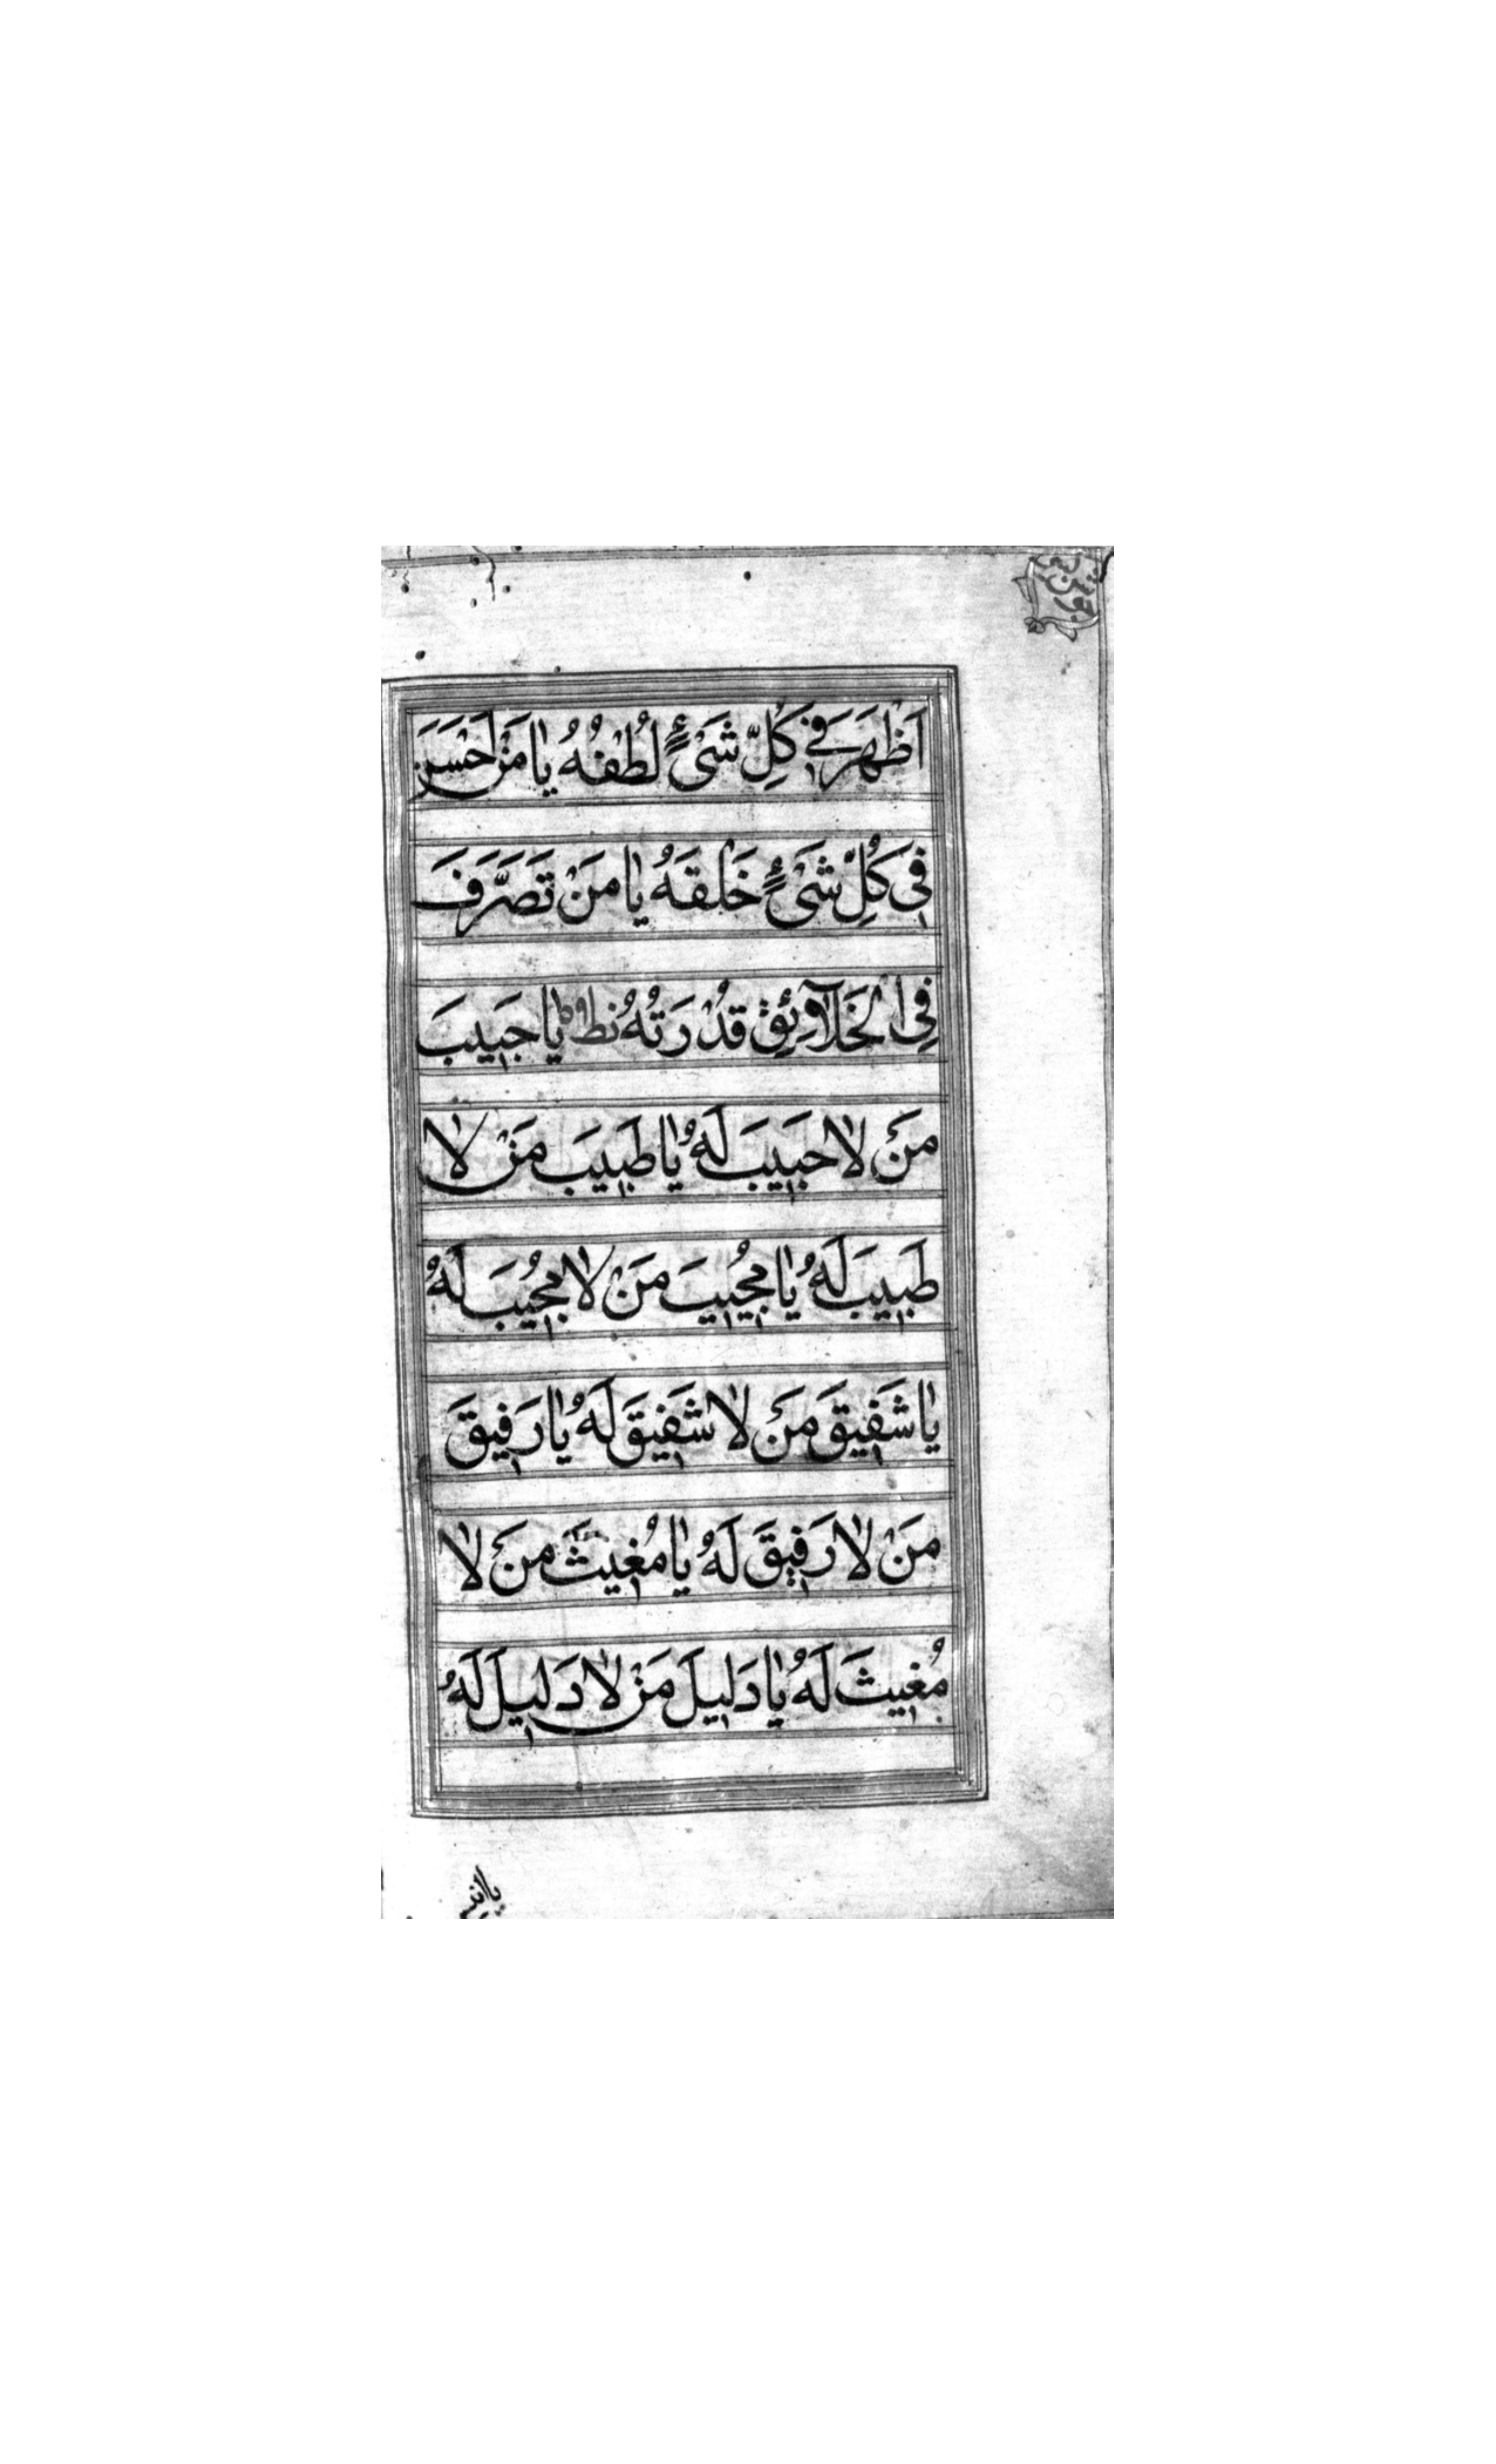 جوشن كبير
اَظْهَرَ فِي كُلِّ شَيْءٍ لُطْفُهُ يَا مَنْ اَحْسَنَ
فِي كُلِّ شَيْءٍ خَلْقَهُ يَا مَنْ تَصَرَّفَ
فِي الْخَلَآئِقِ قُدْرَتُهُ نط يَا حَبِيبَ
مَنْ لَا حَبِيبَ لَهُ يَا طَبِيبَ مَنْ لَا
طَبِيبَ لَهُ يَا مُجِيبَ مَنْ لَا مُجِيبَ لَهُ
يَا شَفِيقَ مَنْ لَا شَفِيقَ لَهُ يَا رَفِيقَ
مَنْ لَا رَفِيقَ لَهُ يَا مُغِيثَ مَنْ لَا
مُغِيثَ لَهُ يَا دَلِيلَ مَنْ لَا دَلِيلَ لَهُ